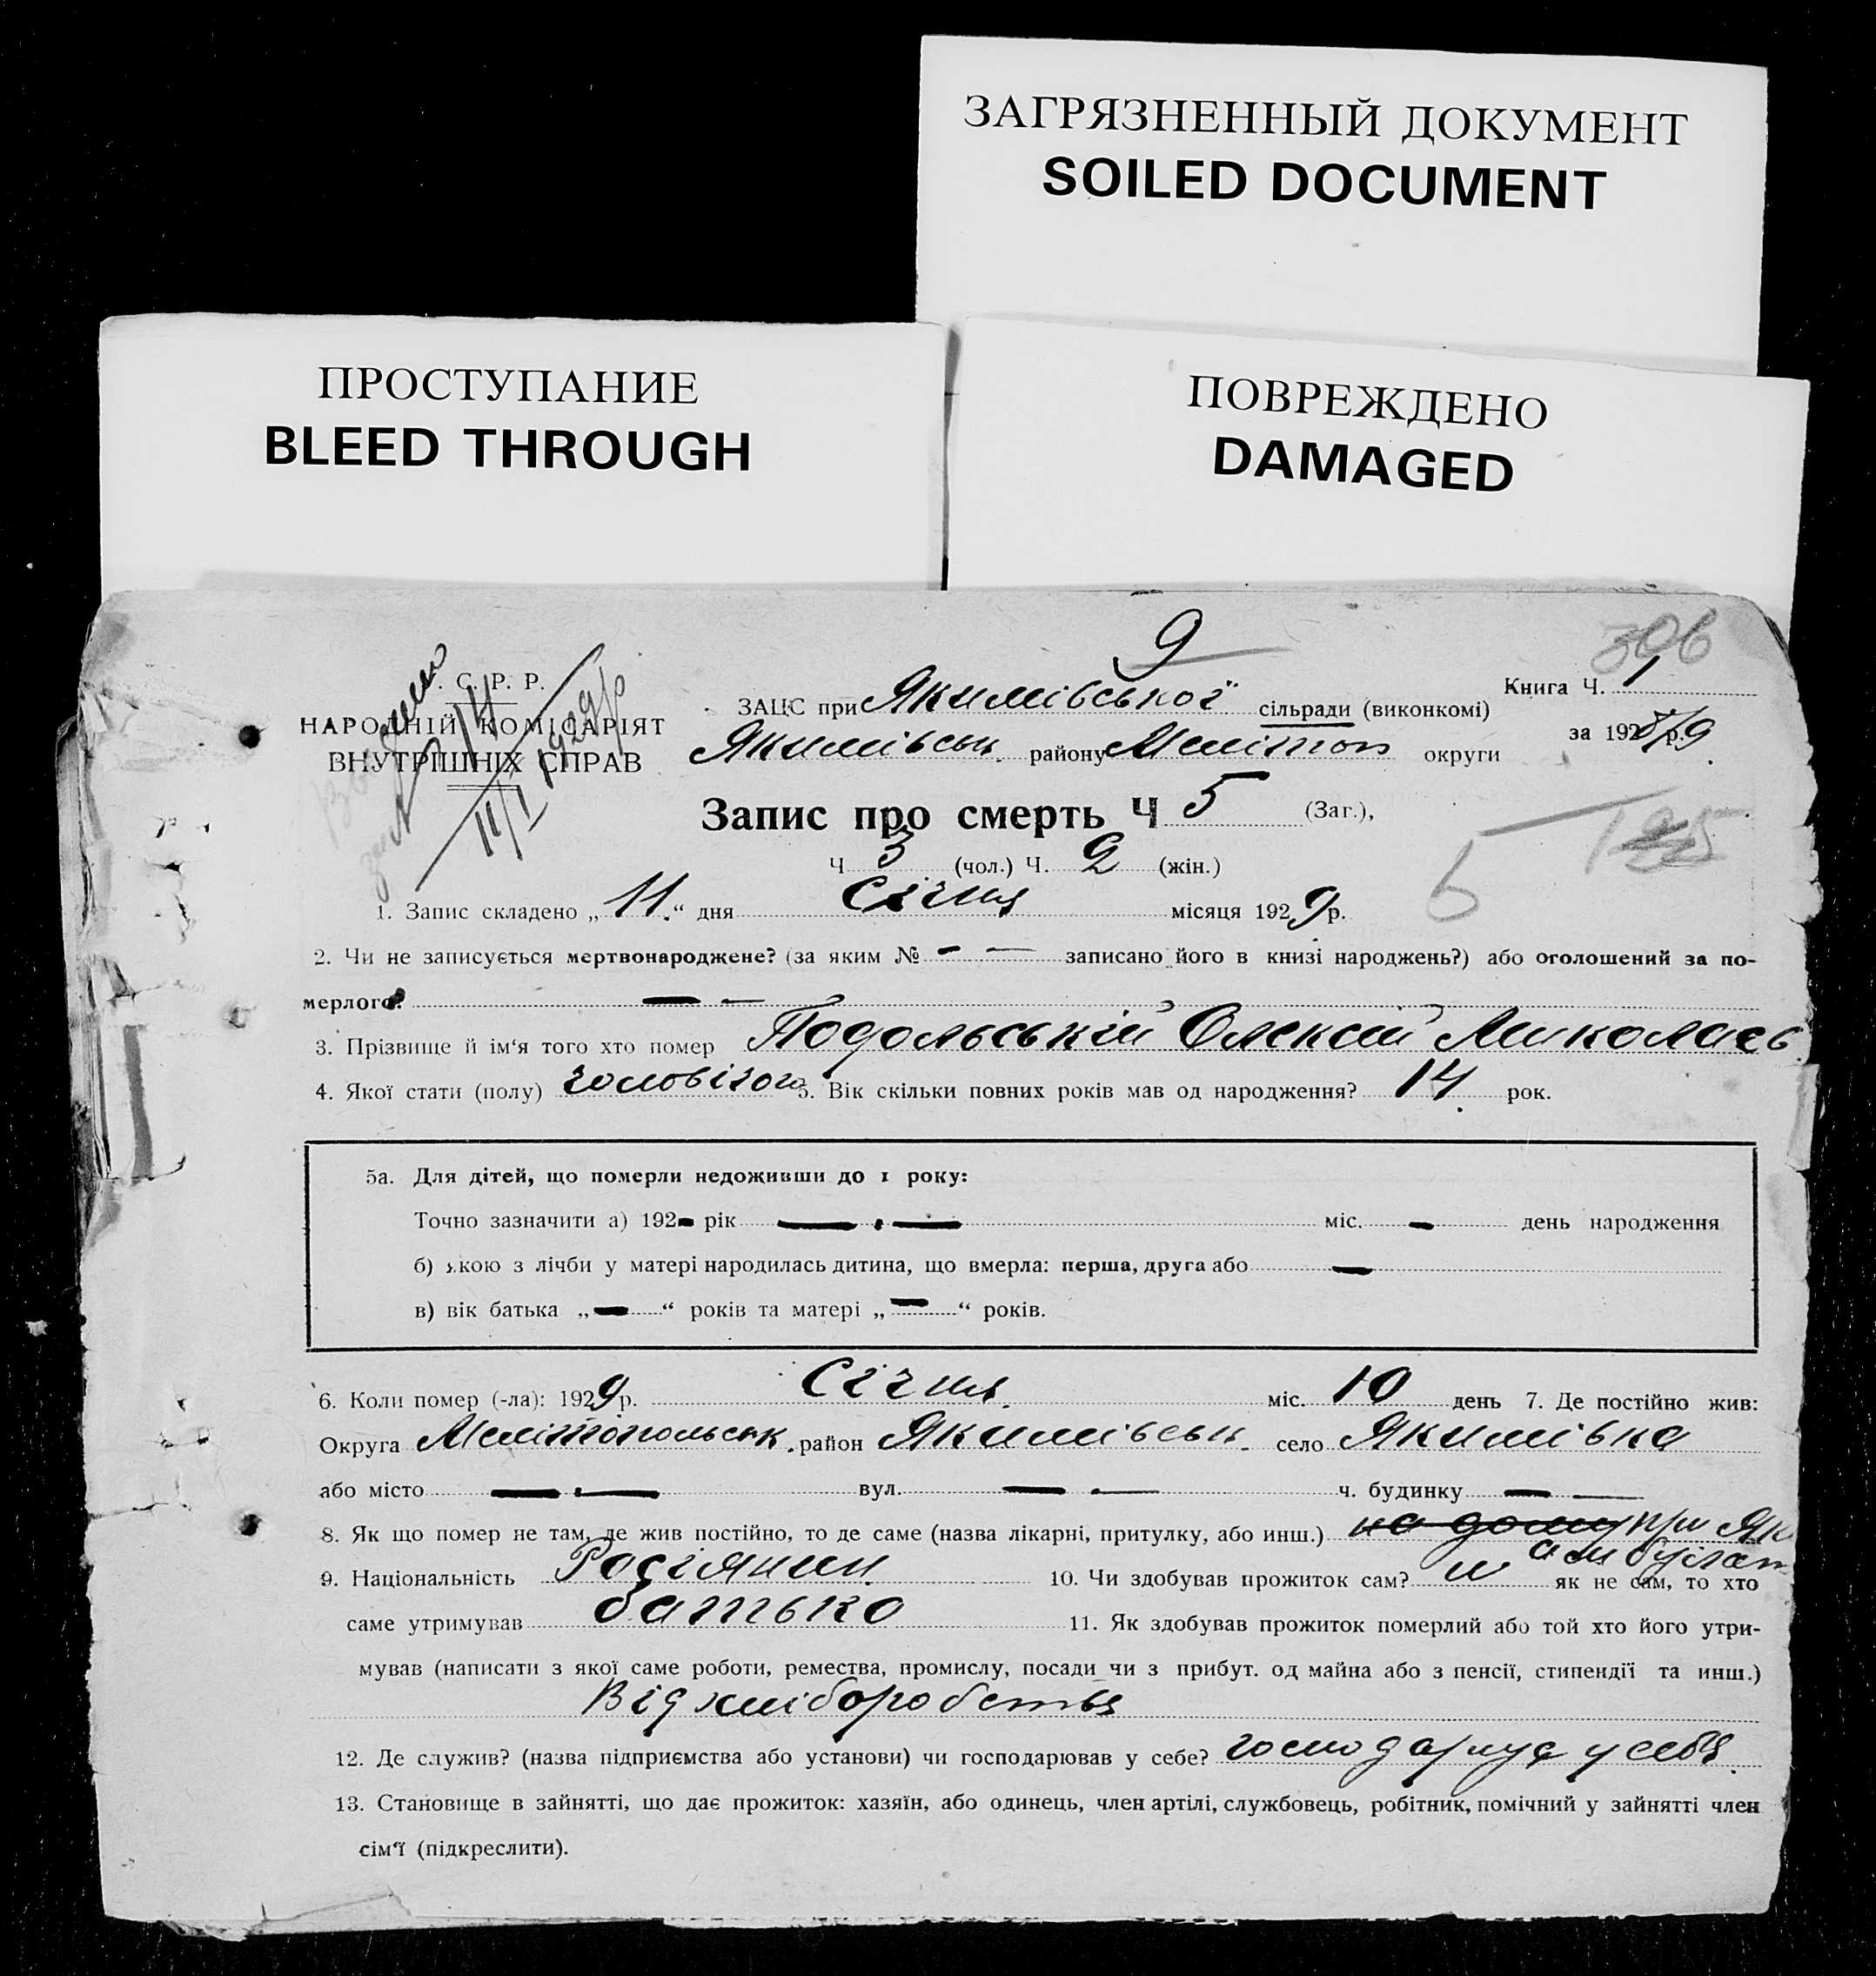 ЗАГРЯЗНЕННЫЙ ДОКУМЕНТ
SOILED DOCUMENT
ПРОСТУПАНИЕ
BLEED THROUGH
ПОВРЕЖДЕНО
DAMAGED
9
306
. С. Р. Р.
НАРОДНІЙ КОМІСАРІЯТ
ВНУТРІШНІХ СПРАВ
11/I 1929 р
ЗАЦС при Якимівської сільради (виконкомі)
Книга Ч. 1
Якимівськ. району Мелітоп округи
за 1928/9 р.
Запис про смерть Ч 5 (Заг.),
Ч 3 (чол.) Ч. 2 (жін.)
5
1. Запис складено „11.“ дня Січня місяця 1929 р.
2. Чи не записується мертвонароджене? (за яким № — — записано його в книзі народжень?) або оголошений за по-
мерлого? — —
3. Прізвище й ім‘я того хто помер Подольський Олексій Миколаєв
4. Якої стати (полу) чоловічого 5. Вік скільки повних років мав од народження? 14 рок.
5а. Для дітей, що померли недоживши до 1 року:
Точно зазначити а) 192– рік — — міс. — день народження
б) якою з лічби у матері народилась дитина, що вмерла: перша, друга або —
в) вік батька „—“ років та матері „—“ років.
6. Коли помер (-ла): 1929 р. Січня міс. 10 день 7. Де постійно жив:
Округа Мелітопольськ. район Якимівськ. село Якимівка
або місто — — вул. — — ч. будинку — —
8. Як що помер не там, де жив постійно, то де саме (назва лікарні, притулку, або инш.) на дому при Як
амбулат
9. Національність Росіянин 10. Чи здобував прожиток сам? як не сам, то хто
саме утримував батько 11. Як здобував прожиток померлий або той хто його утри-
мував (написати з якої саме роботи, ремества, промислу, посади чи з прибут. од майна або з пенсії, стипендії та инш.)
Від хліборобства
12. Де служив? (назва підприємства або установи) чи господарював у себе? господарює у себе
13. Становище в зайнятті, що дає прожиток: хазяїн, або одинець, член артілі, службовець, робітник, помічний у зайнятті член
сім‘ї (підкреслити).